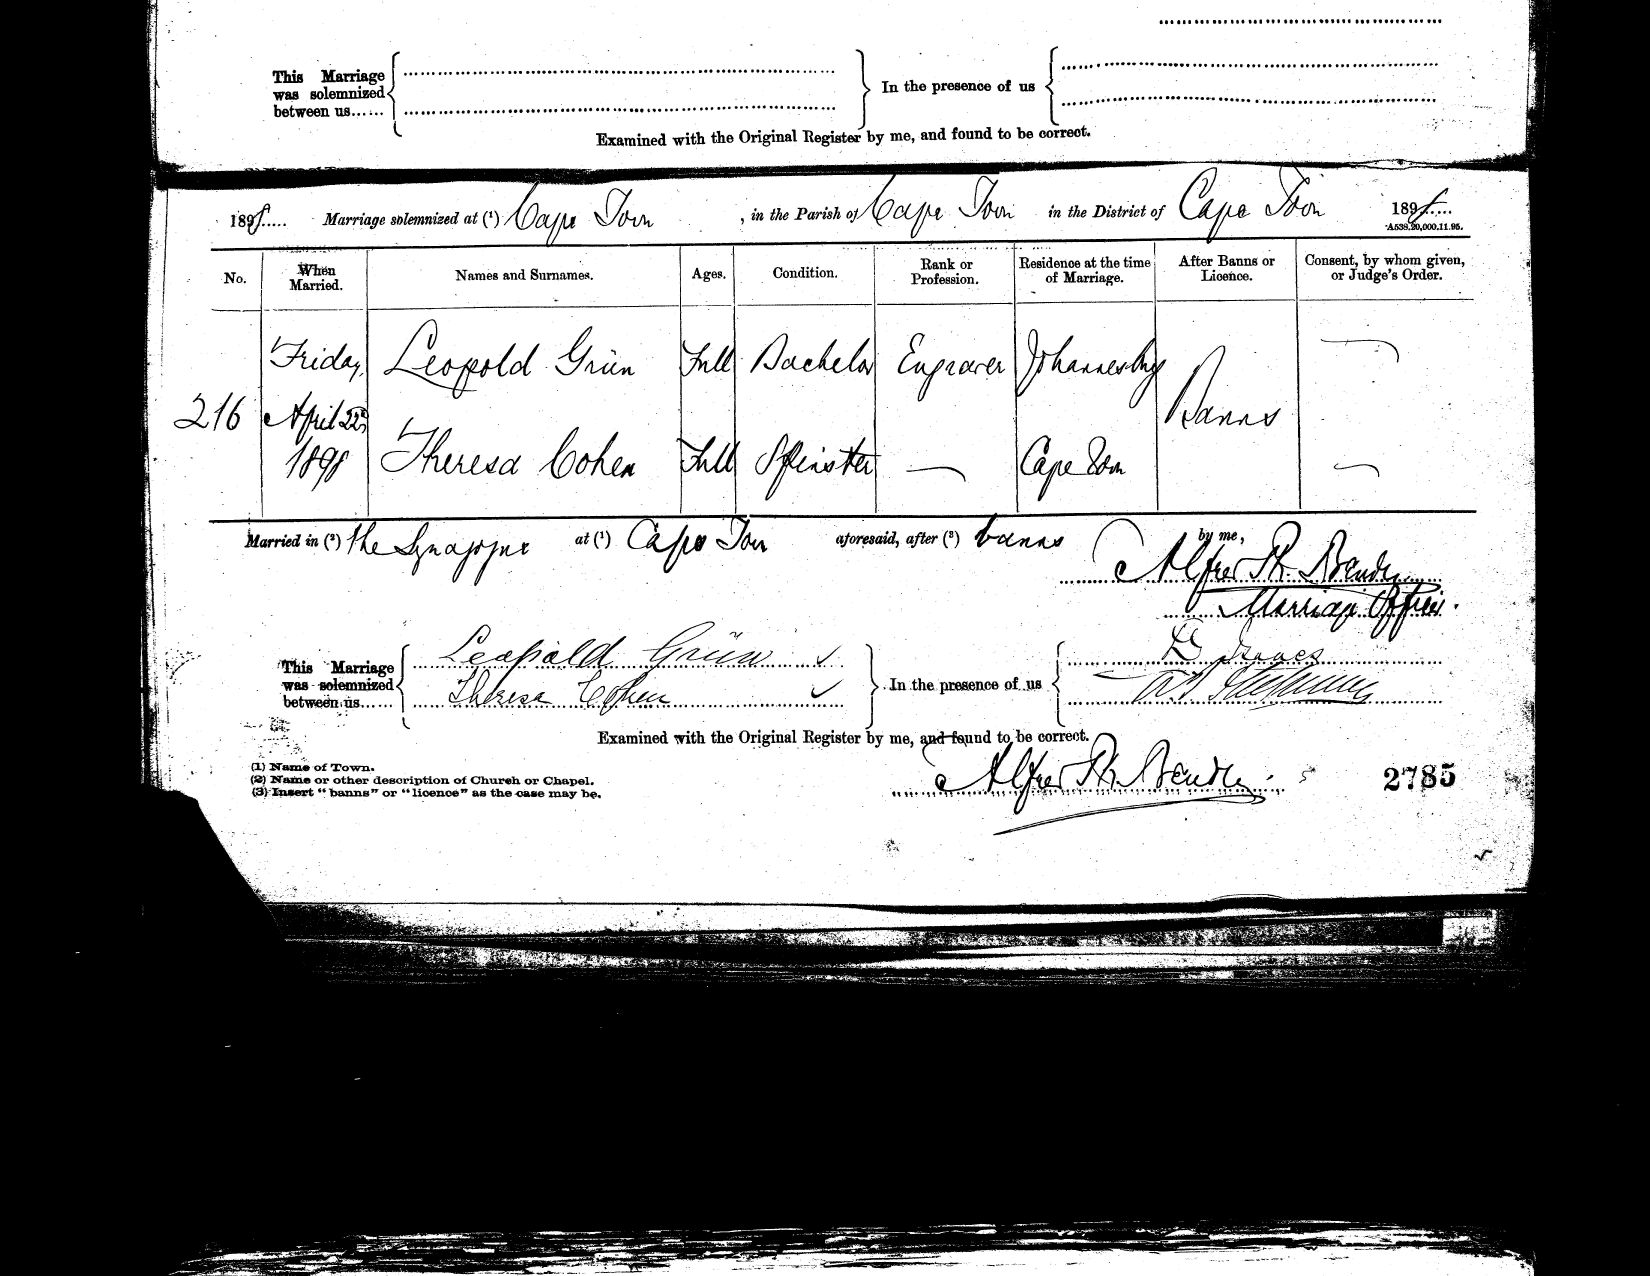 This Marriage
was solemnized
between us...... In the presence of us
Examined with the Original Register by me, and found to be correct.
1898..... Marriage solemnized at (1) Cape Town, in the Parish of Cape Town in the District of Cape Town 1898.....
A538.20,000.11.95.
No. When Married. Names and Surnames. Ages. Condition. Rank or Profession. Residence at the time of Marriage. After Banns or Licence. Consent, by whom given, or Judge's Order.
Friday, Leopold Grün Full Bachelor Engraver Johannesbg —
216 April 22nd Banns
1898 Theresa Cohen Full Spinster — Cape Town —
Married in (2) the Synagogue at (1) Cape Town aforesaid, after (3) banns by me,
Alfred Ph. Bender
Marriage Officer.
This Marriage Leopold Grün ✓ Isaacs
was solemnized In the presence of us
between us...... Theresa Cohen ✓
Examined with the Original Register by me, and found to be correct.
Alfred Ph. Bender.
(1) Name of Town.
(2) Name or other description of Church or Chapel.
(3) Insert "banns" or "licence" as the case may be.
2785